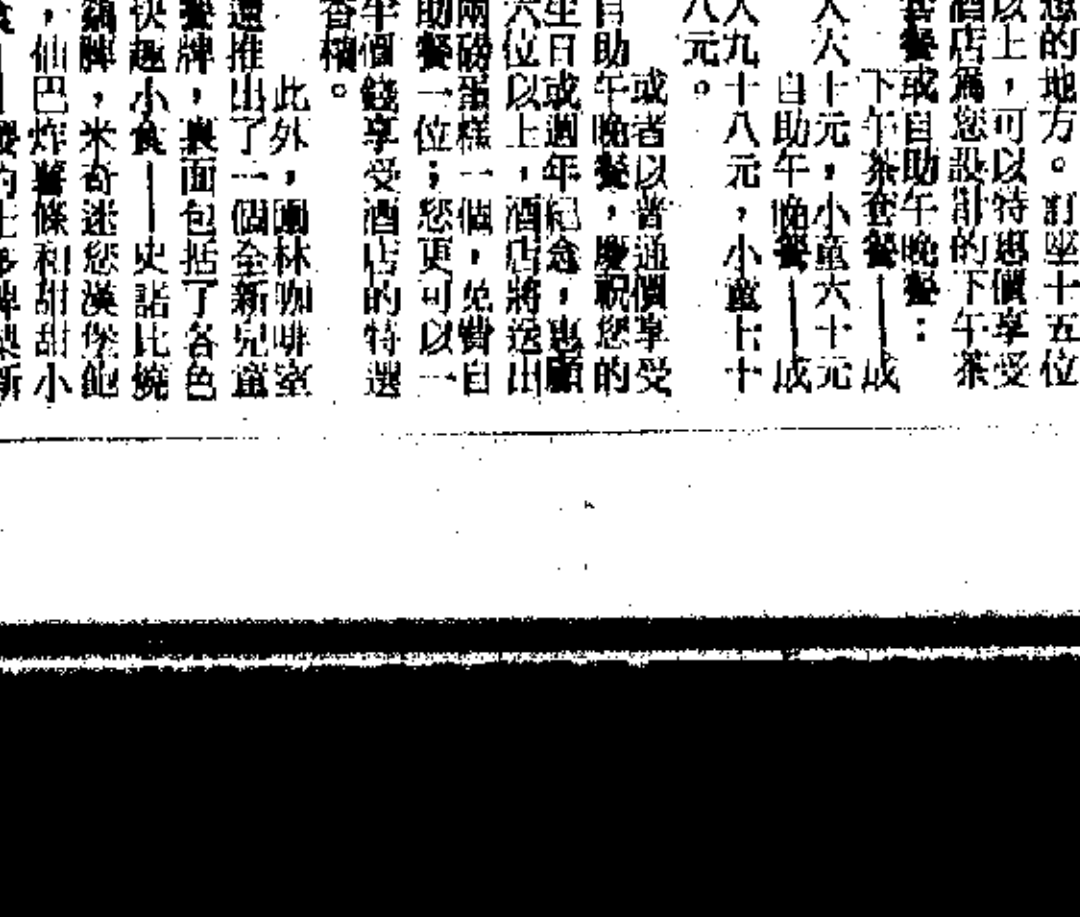 的地方。訂座十五位
以上，可以特惠價享受
酒店為您設計的下午茶
套餐或自助午晚餐：
下午茶套餐——成
人六十元，小童六十元
自助午晚餐——成
人九十八元，小童七十
八元。
或者以普通價享受
自助午晚餐，慶祝您的
生日或週年紀念，惠顧
六位以上，酒店將送出
兩磅蛋糕一個，免費自
助餐一位；您更可以一
半價錢享受酒店的特選
香檳。
此外，圖林咖啡室
還推出了一個全新兒童
餐牌，裏面包括了各色
快趣小食——史諾比燒
腸脾，米奇迷您漢堡飽
，仙巴炸薯條和甜甜小